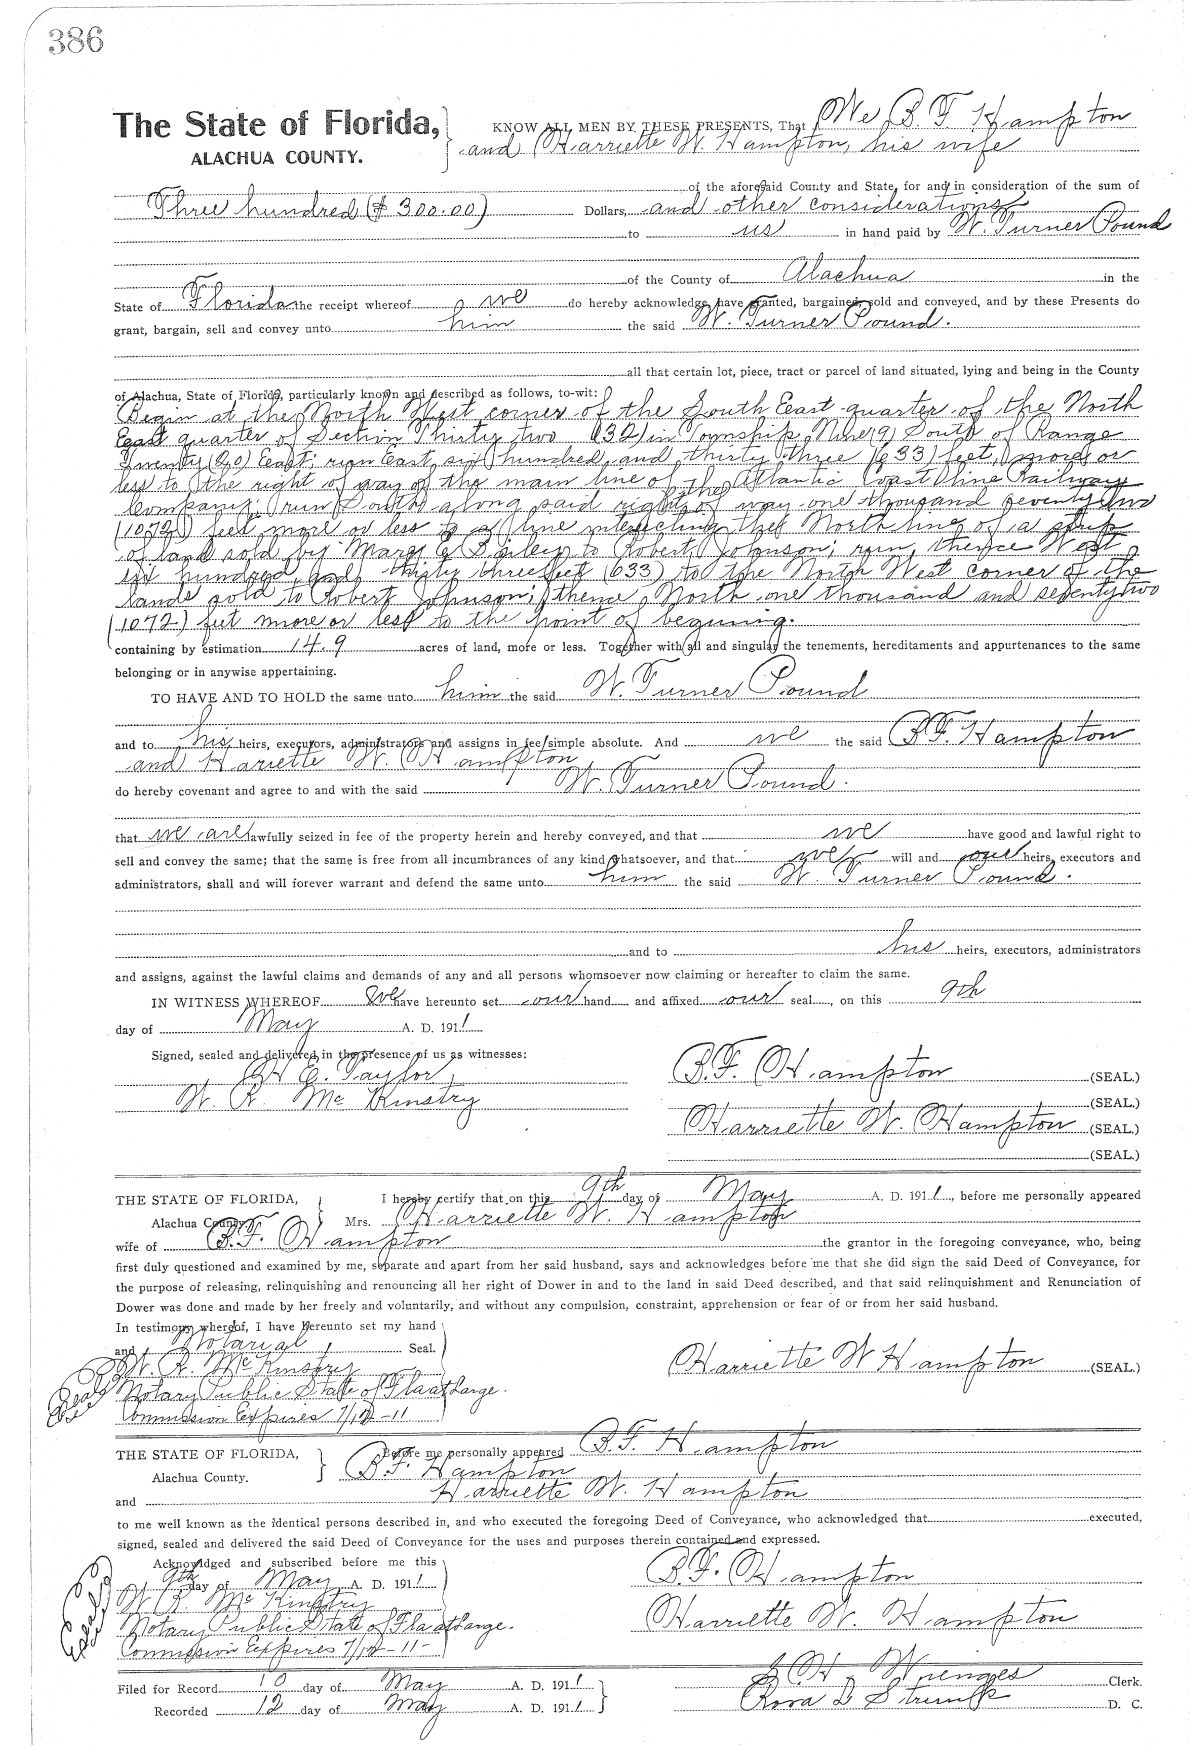 386
The State of Florida, KNOW ALL MEN BY THESE PRESENTS, That We B. F. Hampton
ALACHUA COUNTY. and Harriette W. Hampton, his wife
of the aforesaid County and State, for and in consideration of the sum of
Three hundred ($300.00) Dollars, and other considerations
to us in hand paid by W. Turner Pound
of the County of Alachua in the
State of Florida the receipt whereof we do hereby acknowledge, have granted, bargained, sold and conveyed, and by these Presents do
grant, bargain, sell and convey unto him the said W. Turner Pound.
all that certain lot, piece, tract or parcel of land situated, lying and being in the County
of Alachua, State of Florida, particularly known and described as follows, to-wit:
Begin at the North West corner of the South East quarter of the North
East quarter of Section Thirty two (32) in Township Nine (9) South of Range
Twenty (20) East; run East, six hundred and thirty three (633) feet, more or
less to the right of way of the main line of the Atlantic Coast Line Railway
Company; run South along said right of way one thousand seventy two
(1072) feet more or less to a line intersecting the North line of a strip
of land sold by Mary E. Bailey to Robert Johnson; run thence West
six hundred and thirty three feet (633) to the North West corner of the
lands sold to Robert Johnson; thence North one thousand and seventy two
(1072) feet more or less to the point of begining.
containing by estimation 14.9 acres of land, more or less. Together with all and singular the tenements, hereditaments and appurtenances to the same
belonging or in anywise appertaining.
TO HAVE AND TO HOLD the same unto him the said W. Turner Pound
and to his heirs, executors, administrators and assigns in fee simple absolute. And we the said B. F. Hampton
and Hariette W. Hampton
do hereby covenant and agree to and with the said W. Turner Pound.
that we are lawfully seized in fee of the property herein and hereby conveyed, and that we have good and lawful right to
sell and convey the same; that the same is free from all incumbrances of any kind whatsoever, and that we will and our heirs, executors and
administrators, shall and will forever warrant and defend the same unto him the said W. Turner Pound.
and to his heirs, executors, administrators
and assigns, against the lawful claims and demands of any and all persons whomsoever now claiming or hereafter to claim the same.
IN WITNESS WHEREOF We have hereunto set our hand and affixed our seal, on this 9th
day of May A. D. 1911
Signed, sealed and delivered in the presence of us as witnesses:
H E. Taylor B. F. Hampton (SEAL.)
W. R. McKinstry (SEAL.)
Harriette W. Hampton (SEAL.)
(SEAL.)
THE STATE OF FLORIDA, I hereby certify that on this 9th day of May A. D. 1911, before me personally appeared
Alachua County. Mrs. Harriette W. Hampton
wife of B. F. Hampton the grantor in the foregoing conveyance, who, being
first duly questioned and examined by me, separate and apart from her said husband, says and acknowledges before me that she did sign the said Deed of Conveyance, for
the purpose of releasing, relinquishing and renouncing all her right of Dower in and to the land in said Deed described, and that said relinquishment and Renunciation of
Dower was done and made by her freely and voluntarily, and without any compulsion, constraint, apprehension or fear of or from her said husband.
In testimony whereof, I have hereunto set my hand
and Notarial Seal.
W. R. McKinstry Harriette W Hampton (SEAL.)
Seal
Notary Public State of Fla at Large.
Commission Expires 7/12-11
THE STATE OF FLORIDA, Before me personally appeared B. F. Hampton
Alachua County. B. F. Hampton
and Harriette W. Hampton
to me well known as the identical persons described in, and who executed the foregoing Deed of Conveyance, who acknowledged that executed,
signed, sealed and delivered the said Deed of Conveyance for the uses and purposes therein contained and expressed.
Acknowledged and subscribed before me this
9th day of May, A. D. 1911 B. F. Hampton
W R. McKinstry
Seal
Notary Public State of Fla at Large. Harriette W. Hampton
Commission Expires 7/12-11-
Filed for Record 10 day of May A. D. 1911 S. H. Wienges Clerk.
Recorded 12 day of May A. D. 1911 D. C.